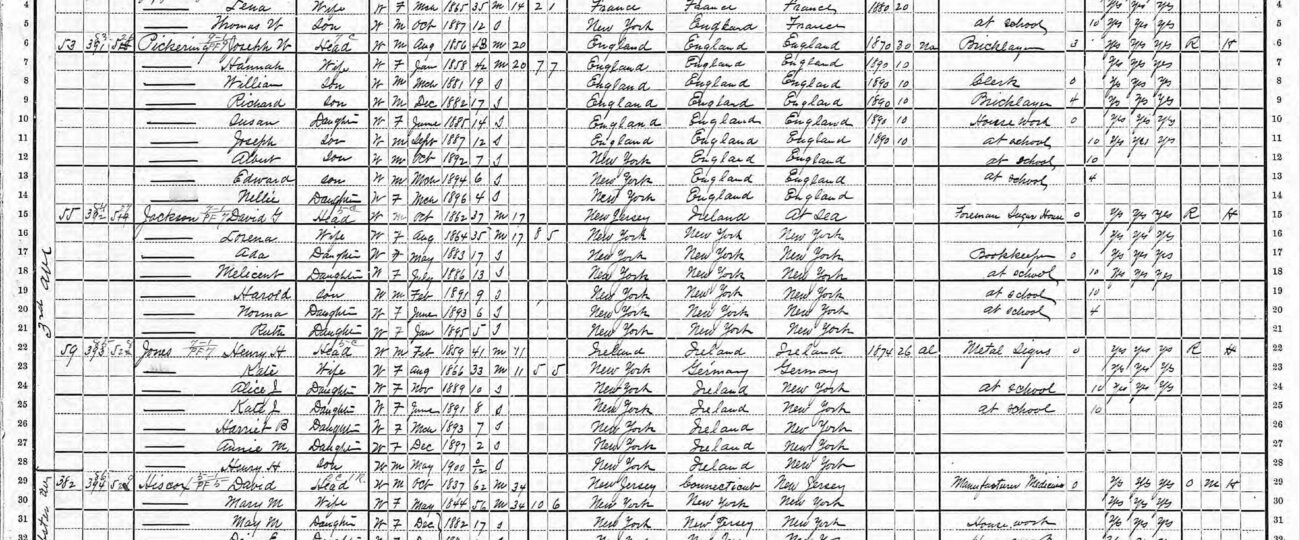 4 Lena Wife W F Mar 1865 35 M 14 2 1 France France France 1880 20 Yes Yes Yes 4
5 Thomas W Son W M Oct 1887 12 S New York England France at school 10 Yes Yes Yes 5
6 53 Pickering Joseph W Head W M Aug 1856 43 M 20 England England England 1870 30 Na Bricklayer 3 Yes Yes Yes R H 6
7 Hannah Wife W F Jan 1858 42 M 20 7 7 England England England 1890 10 Yes Yes Yes 7
8 William Son W M Mch 1881 19 S England England England 1890 10 Clerk 0 Yes Yes Yes 8
9 Richard Son W M Dec 1882 17 S England England England 1890 10 Bricklayer 4 Yes Yes Yes 9
10 Susan Daughter W F June 1885 14 S England England England 1890 10 House work 0 Yes Yes Yes 10
11 Joseph Son W M Sept 1887 12 S England England England 1890 10 at school 10 Yes Yes Yes 11
12 Albert Son W M Oct 1892 7 S New York England England at school 10 12
13 Edward Son W M Mch 1894 6 S New York England England at school 4 13
14 Nellie Daughter W F Mch 1896 4 S New York England England 14
15 55 Jackson David G Head W M Oct 1862 37 M 17 New Jersey Ireland At Sea Foreman Sugar House 0 Yes Yes Yes R H 15
16 Lorena Wife W F Aug 1864 35 M 17 8 5 New York New York New York Yes Yes Yes 16
17 Ada Daughter W F May 1883 17 S New York New York New York Bookkeeper 0 Yes Yes Yes 17
18 Melicent Daughter W F July 1886 13 S New York New York New York at school 10 Yes Yes Yes 18
19 Harold Son W M Feb 1891 9 S New York New York New York at school 10 19
20 Norma Daughter W F June 1893 6 S New York New York New York at school 4 20
21 Ruth Daughter W F Jan 1895 5 S New York New York New York 21
22 59 Jones Henry H Head W M Feb 1859 41 M 11 Ireland Ireland Ireland 1874 26 Al Metal Signs 0 Yes Yes Yes R H 22
23 Kate Wife W F Aug 1866 33 M 11 5 5 New York Germany Germany Yes Yes Yes 23
24 Alice J Daughter W F Nov 1889 10 S New York Ireland New York at school 10 Yes Yes Yes 24
25 Kate J Daughter W F June 1891 8 S New York Ireland New York at school 10 25
26 Harriet B Daughter W F Mch 1893 7 S New York Ireland New York 26
27 Annie M Daughter W F Dec 1897 2 S New York Ireland New York 27
28 Henry H Son W M May 1900 0/12 S New York Ireland New York 28
29 382 Hiscox David Head W M Oct 1837 62 M 34 New Jersey Connecticut New Jersey Manufacturer Medicines 0 Yes Yes Yes O M H 29
30 Mary M Wife W F May 1844 56 M 34 10 6 New York New York New York Yes Yes Yes 30
31 May M Daughter W F Dec 1882 17 S New York New Jersey New York House work Yes Yes Yes 31
32 32
3rd Ave